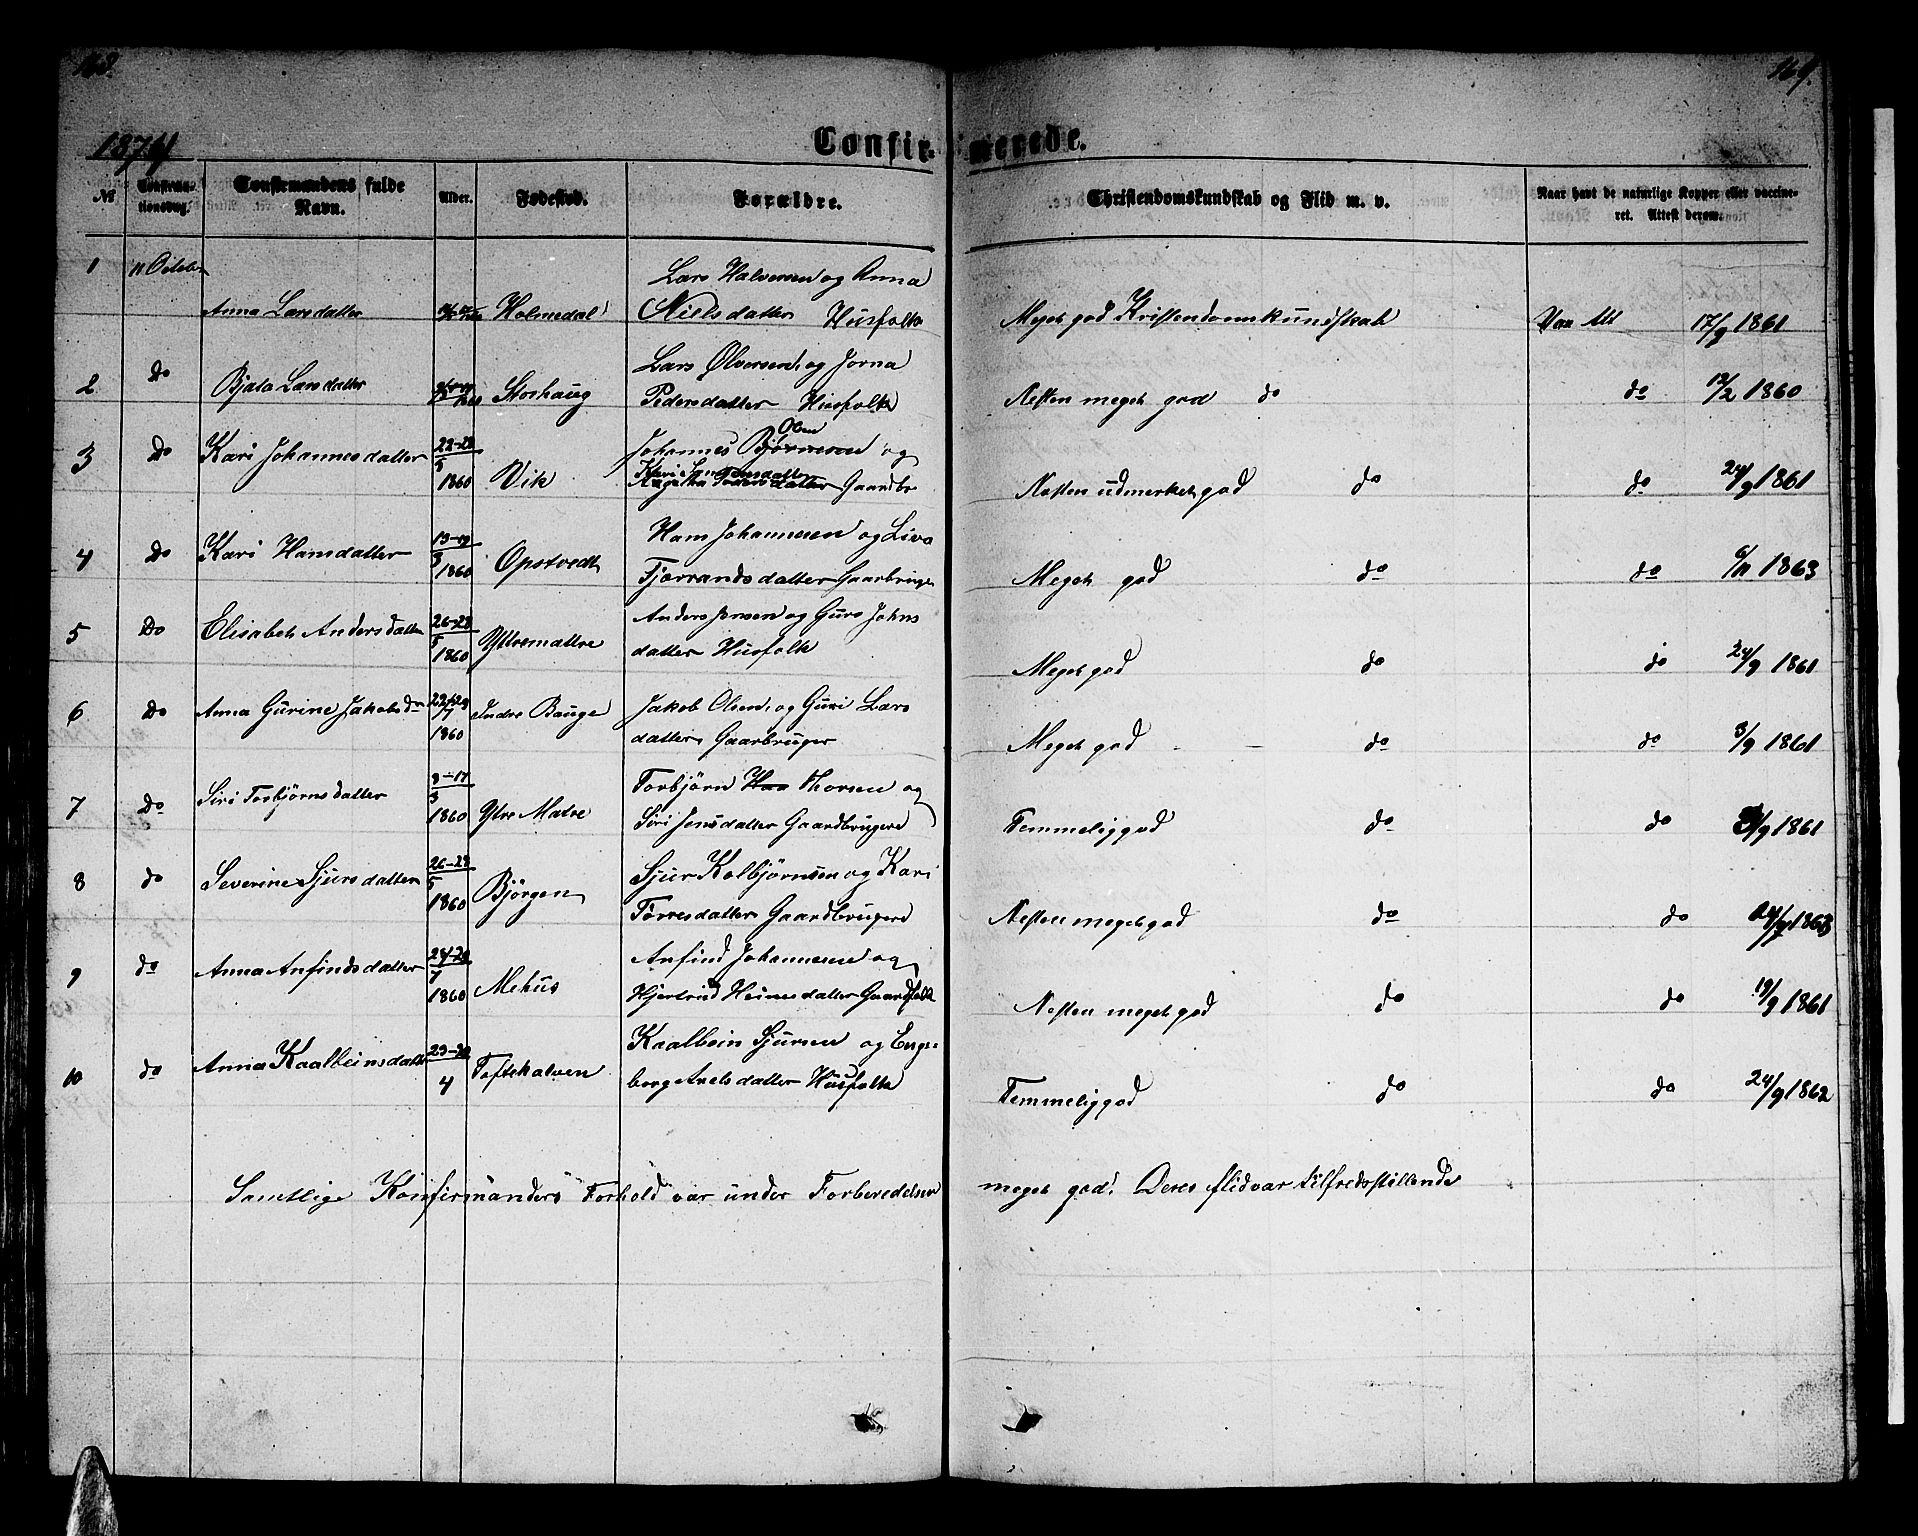 168.
169.
1874
Confir-
merede.
№
Confirma-
tionsdag.
Confirmandens fulde
Navn.
Alder.
Fødested.
Forældre.
Christendomskundskab og Flid m. v.
Naar havt de naturlige Kopper eller vaccine-
ret. Attest derom.
1 11 October Lars Halversen og Anna
Anna Larsdatter Holmedal Nielsdatter Husfolk Meget god Kristendomskundskab Vax Att 17/9 1861
2 Do Larsdatter Storhaug Lars Ølversen og Jorna
Pedersdatter Husfolk Nesten meget god do do 12/2 1860
3 Do Kari Johannesdatter 22-28 Johannes Bjørnesen Olsen og
5
1860 Vik Kari datter Gaardbr Nesten udmerket god do do 24/9 1861
4 Do Kari Hansdatter 13-19 Hans Johannesen og Liva
3
1860 Opstvedt Tjerandsdatter Gaarbruger Meget god do do 6/11 1863
5 Do Elisabet Andersdatter 26-28 Anders Jensen og Guro Johns
5
1860 Yttrematre datter Husfolk Meget god do do 24/9 1861
6 Do Anna Gurine Jakobsdr 22-29 Indre Bauge Jakob Olsen og Guri Lars
7
1860 datter Gaarbruger Meget god - - do do 3/9 1861
7 Do Siri Torbjørnsdatter 9-17 Torbjörn Thorsen og
3
1860 Ytre Matre Siri Jensdatter Gaardbrugere Temmelig god do do 3/9 1861
8 do Severine Sjursdatter 26-28 Sjur Kolbjørnsen og Kari
5
1860 Björgen Torresdatter Gaardbrugere Nesten meget god do do 24/9 1863
9 do Anna Anfindsdatter 24-28 Anfind Johannesen og
7
1860 Mehus Hjertrud Heinesdatter Gaardfolk Nesten meget god do do 19/9 1861
10 do Anna Kaalbeinsdatter 23-28 Kaalbein Sjursen og Enge-
4 Toftekalven borg Axelsdatter Husfolk Temmelig god do do 24/9 1862
Samtlige Konfirmanders Forhold var under Forberedelsen meget god. Deres flid var tilfredsstillende